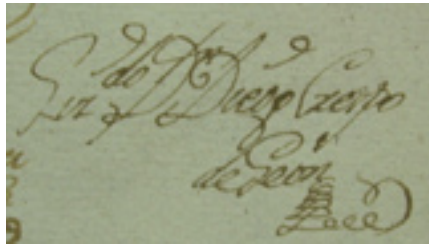 Lizdo Dn Diego Crespo
de Leon